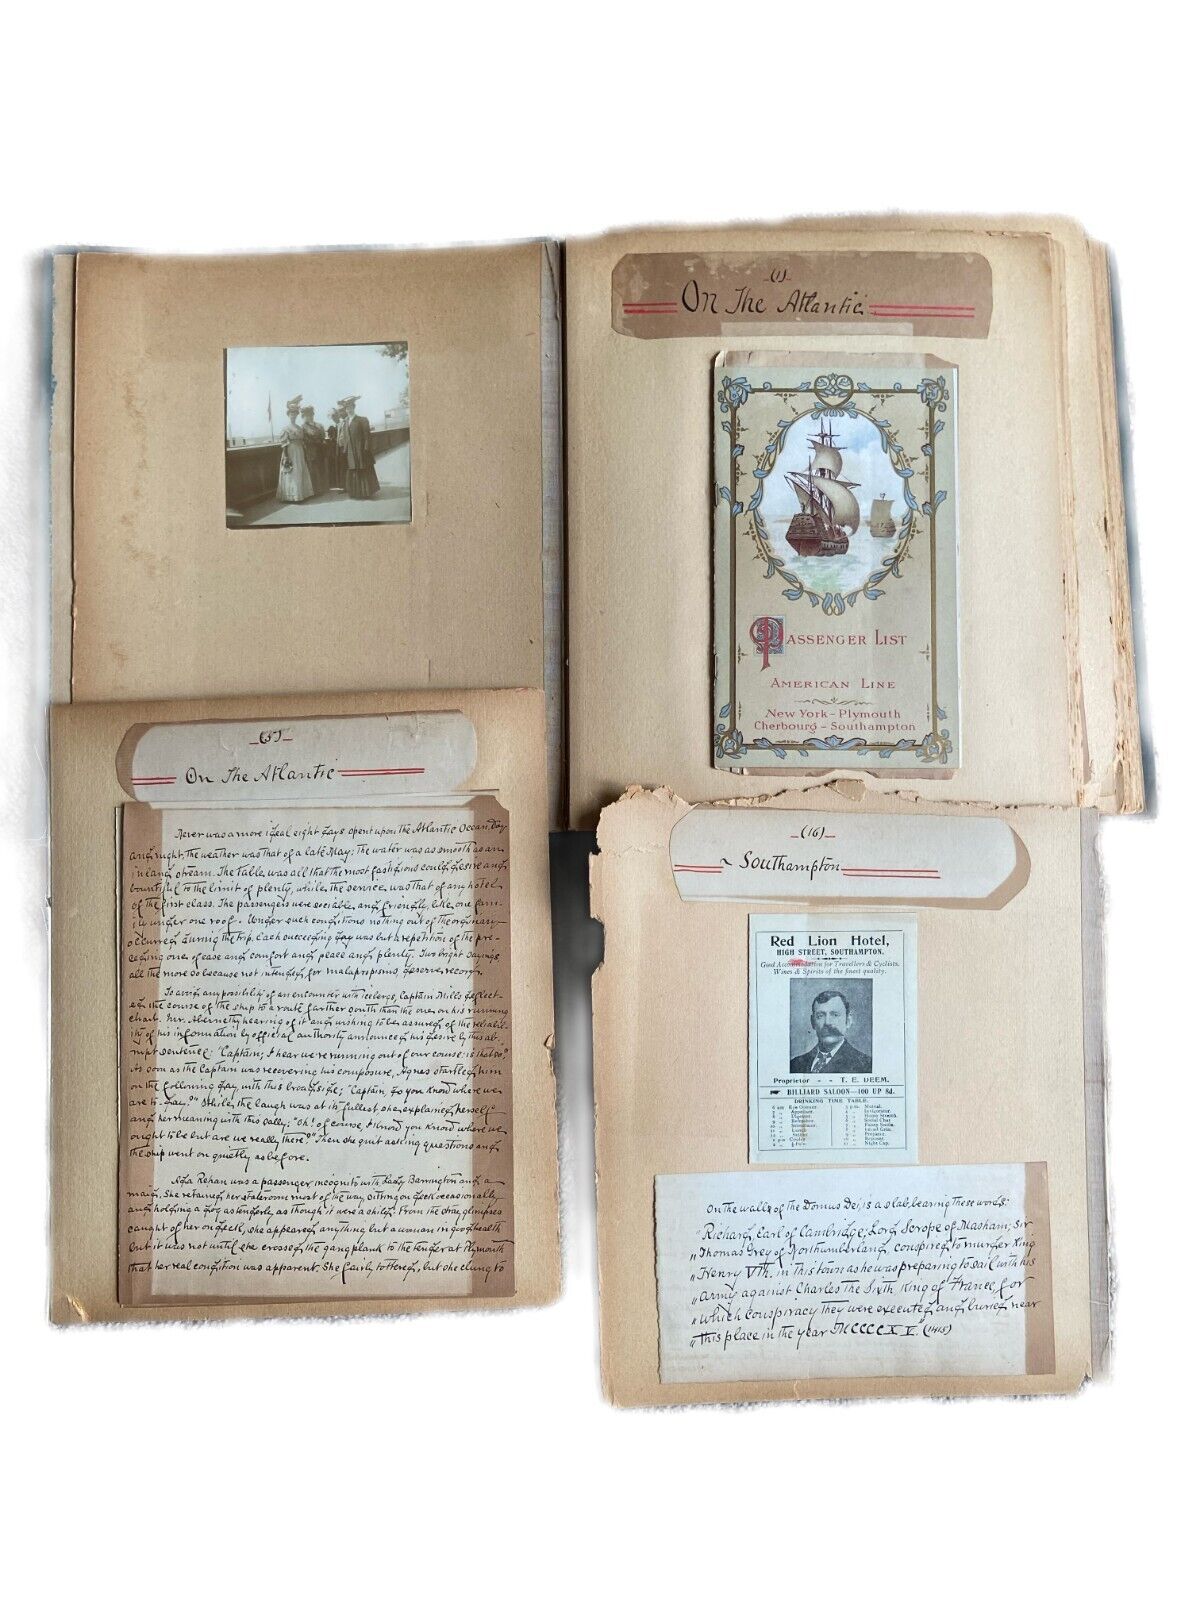 (1)
On The Atlantic
PASSENGER LIST
AMERICAN LINE
New York - Plymouth
Cherbourg - Southampton
(5)
On The Atlantic
Never was a more ideal eight days spent upon the Atlantic Ocean. Day
and night, the weather was that of a late May: The water was as smooth as an
inland stream. The table was all that the most fastidious could desire and
bountiful to the limit of plenty, while the service was that of any hotel
of the first class. The passengers were sociable and friendly, like one fam-
ily under one roof. Under such conditions nothing out of the ordinary
occurred during the trip. Each succeeding day was but a repetition of the pre-
ceding one of ease and comfort and peace and plenty. Two bright sayings
all the more so because not intended for malapropisms, deserve record.
To avoid any possibility of an encounter with icebergs, Captain Mills deflect-
ed the course of the ship to a route farther south than the one on his running
chart. Mr. Abernethy hearing of it and wishing to be assured of the reliabil-
ity of his information by official authority announced his desire by this ab-
rupt sentence; "Captain; I hear we're running out of our course: is that so?"
As soon as the Captain was recovering his composure, Agnes startled him
on the following day with this broadside; "Captain, do you know where we
are to-day?" While the laugh was at its fullest, she explained herself
and her meaning with this sally; "Oh! of course, I know you know where we
ought to be but are we really there?" Then she quit asking questions and
the ship went on quietly as before.
Ada Rehan was a passenger incognito with Lady Barrington and a
maid. She retained her stateroom most of the way sitting on deck occasionally
and holding a dog as tenderly as though it were a child. From the stray glimpses
caught of her on deck, she appeared anything but a woman in good health
but it was not until she crossed the gang plank to the tender at Plymouth
that her real condition was apparent. She fairly tottered, but she clung to
(16)
~ Southampton
Red Lion Hotel,
HIGH STREET, SOUTHAMPTON.
Good Accommodation for Travellers & Cyclists.
Wines & Spirits of the finest quality.
Proprietor - - T. E. DEEM.
BILLIARD SALOON—100 UP 8d.
DRINKING TIME TABLE.
6 a.m. Eye Opener.
7 " Appetiser.
8 " Digester.
11 " Stimulant.
1 p.m. Cooler
Social Chat
Night Cap.
On the walls of the Domus Dei, is a slab, bearing these words:
"Richard, Earl of Cambridge; Lord Scrope of Masham; Sir
"Thomas Grey of Northumberland, conspired to murder King
"Henry Vth. in this town as he was preparing to sail with his
"army against Charles the Sixth King of France, for
"which conspiracy they were executed and buried near
"this place in the year MCCCCXV." (1415)